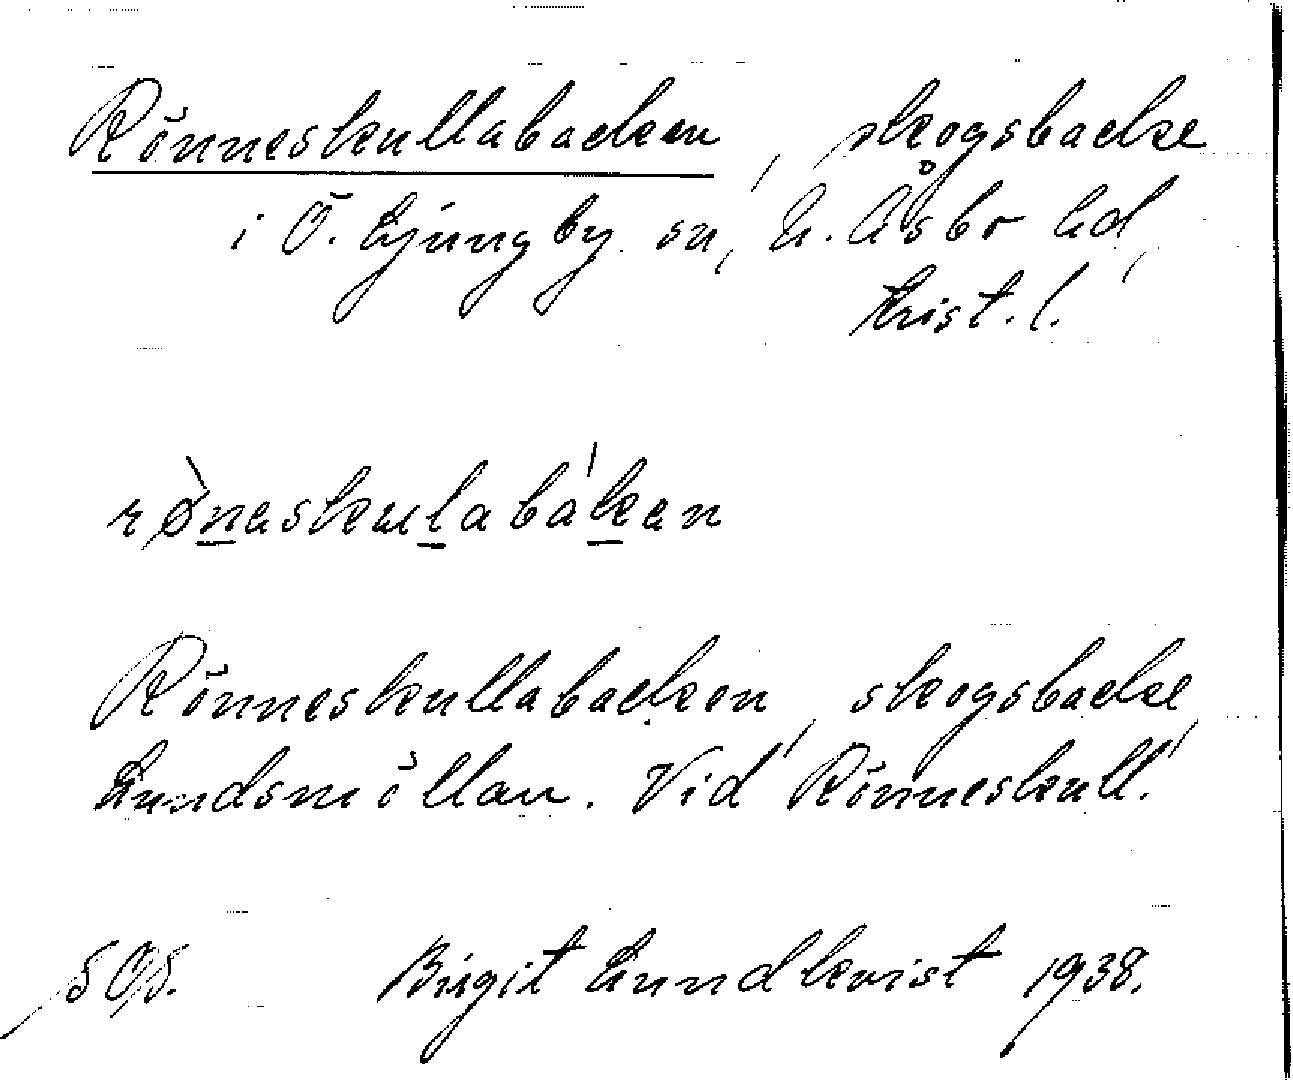 Rönneskullabacken, skogsbacke
i Ö. Ljungby sn, N. Åsbo hd,
Krist. l.
rø̀neskulabákan
Rönneskullabacken, skogsbacke,
Lundsmöllan. Vid Rönneskull.
Birgit Lundkvist 1938.